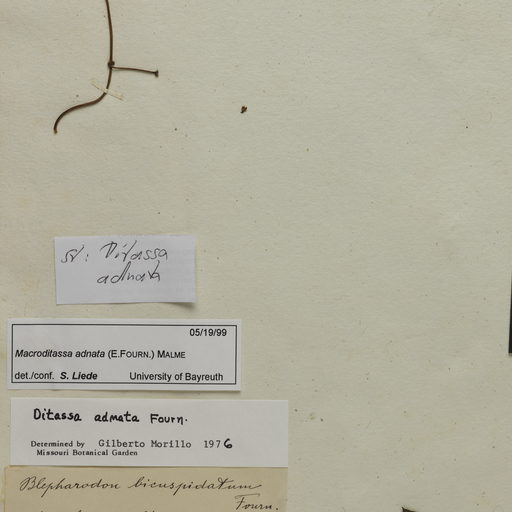 Ditassa
adnata
05/19/99
Macroditassa adnata (E.FOURN.) MALME
det./conf. S. Liede University of Bayreuth
Ditassa adnata Fourn.
Determined by Gilberto Morillo 1976
Missouri Botanical Garden
Blepharodon bicuspidatum
Fourn.